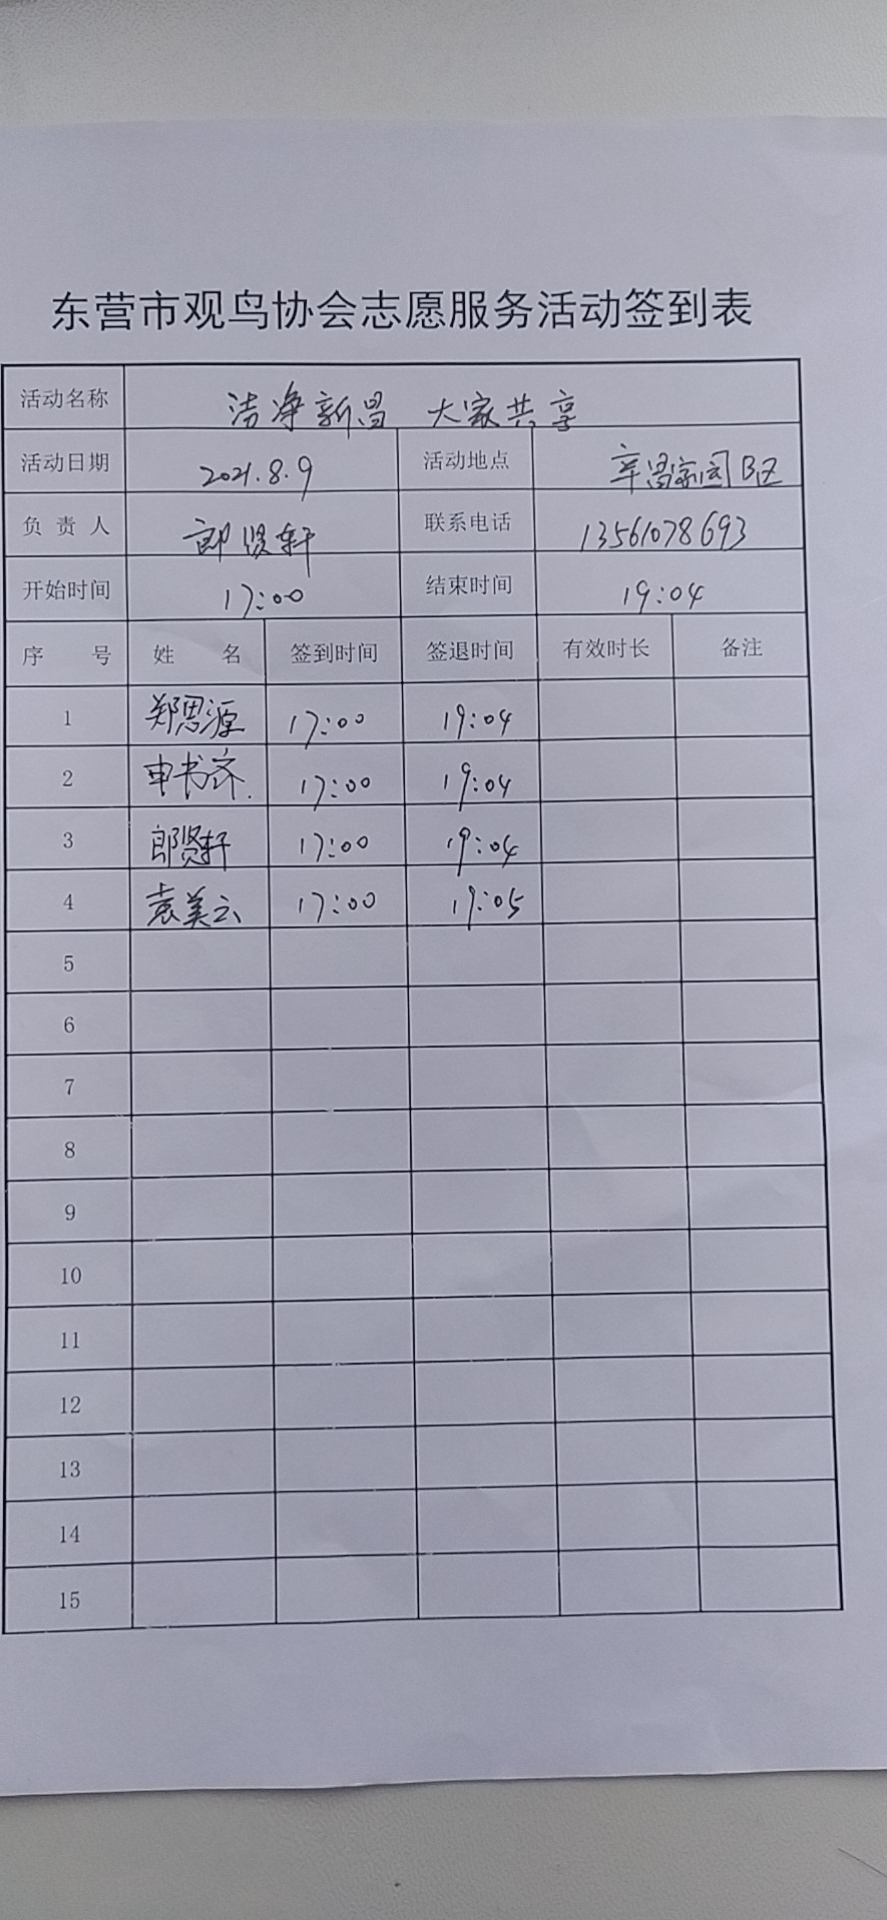 东营市观鸟协会志愿服务活动签到表
活动名称 洁净新昌 大家共享
活动日期 2021.8.9 活动地点 辛昌家园B区
负责人 郎贤轩 联系电话 13561078693
开始时间 17:00 结束时间 19:04
序号 姓名 签到时间 签退时间 有效时长 备注
1 郑思源 17:00 19:04
2 申书齐. 17:00 19:04
3 郎贤轩 17:00 19:04
4 袁美云 17:00 19:05
5
6
7
8
9
10
11
12
13
14
15